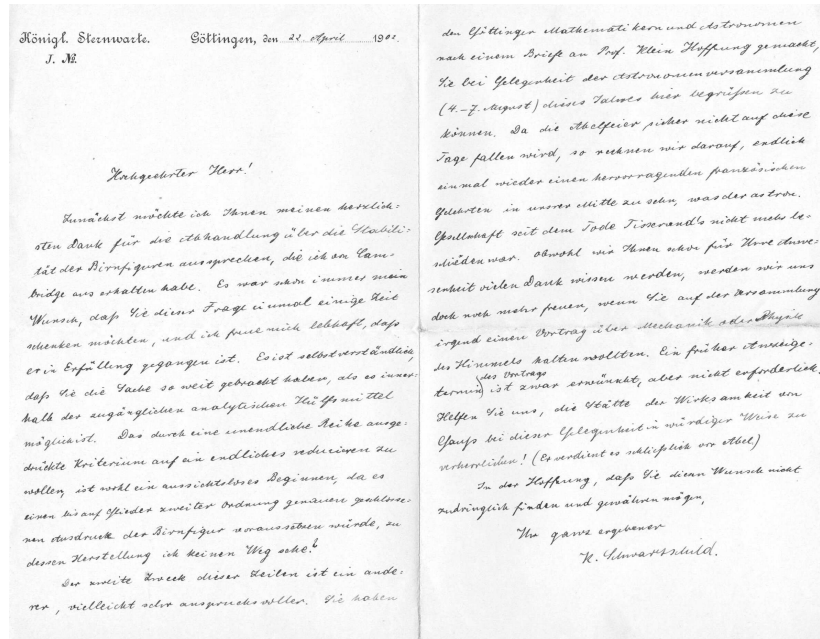 Königl. Sternwarte.
Göttingen, den 22 April 1902.
J. №.
Hochgeehrter Herr!
Zunächst möchte ich Ihnen meinen herzlich-
sten Dank für die Abhandlung über die Stabili-
tät der Birnfiguren aussprechen, die ich von Cam-
bridge aus erhalten habe. Es war schon immer mein
Wunsch, daß Sie dieser Frage einmal einige Zeit
schenken möchten, und ich freue mich lebhaft, daß
er in Erfüllung gegangen ist. Es ist selbstverständlich,
daß Sie die Sache so weit gebracht haben, als es inner-
halb der zugänglichen analytischen Hülfsmittel
möglich ist. Das durch eine unendliche Reihe ausge-
drückte Kriterium auf ein endliches reducieren zu
wollen, ist wohl ein aussichtsloses Beginnen, da es
einen bis auf Glieder zweiter Ordnung genauen geschlosse-
nen Ausdruck der Birnfigur voraussetzen würde, zu
dessen Herstellung ich keinen Weg sehe.
Der zweite Zweck dieser Zeilen ist ein ande-
rer, vielleicht sehr anspruchsvoller. Sie haben
den Göttinger Mathematikern und Astronomen
nach einem Briefe an Prof. Klein Hoffnung gemacht,
Sie bei Gelegenheit der Astronomenversammlung
(4.-7. August) dieses Jahres hier begrüßen zu
können. Da die Abelfeier sicher nicht auf diese
Tage fallen wird, so rechnen wir darauf, endlich
einmal wieder einen hervorragenden französischen
Gelehrten in unsrer Mitte zu sehn, was der astron.
Gesellschaft seit dem Tode Tisserand's nicht mehr be-
schieden war. Obwohl wir Ihnen schon für Ihre Anwe-
senheit vielen Dank wissen werden, werden wir uns
doch noch mehr freuen, wenn Sie auf der Versammlung
irgend einen Vortrag über Mechanik oder Physik
des Himmels halten wollten. Ein früher Anzeige-
termin des Vortrags ist zwar erwünscht, aber nicht erforderlich.
Helfen Sie uns, die Stätte der Wirksamkeit von
Gauß bei dieser Gelegenheit in würdiger Weise zu
verherrlichen! (Er verdient es schließlich vor Abel)
In der Hoffnung, daß Sie diesen Wunsch nicht
zudringlich finden und gewähren mögen,
Ihr ganz ergebener
K. Schwarzschild.